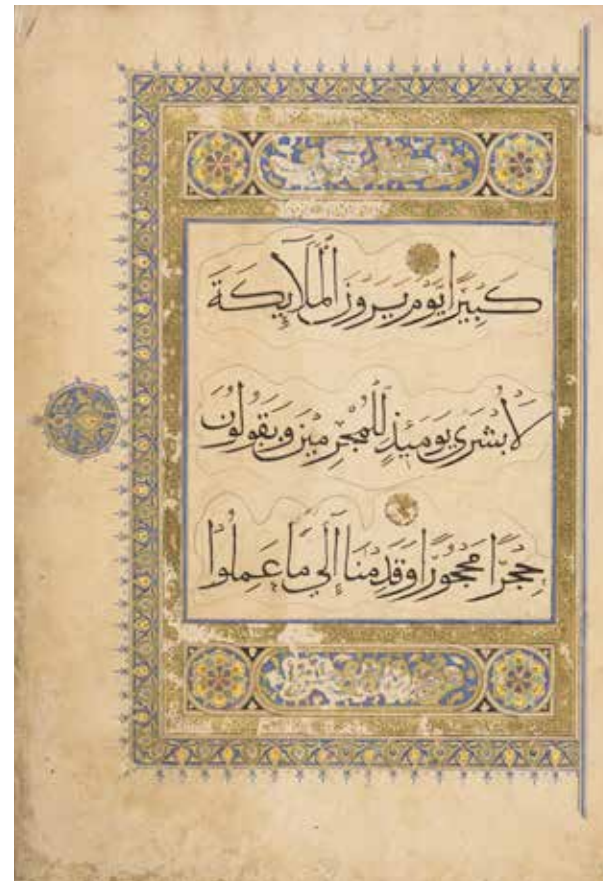 كَبِيرًا يَوْمَ يَرَوْنَ الْمَلَآيِكَةَ
لَا بُشْرَى يَوْمَئِذٍ لِلْمُجْرِمِينَ وَيَقُولُونَ
حِجْرًا مَحْجُورًا وَقَدِمْنَا إِلَى مَا عَمِلُوا